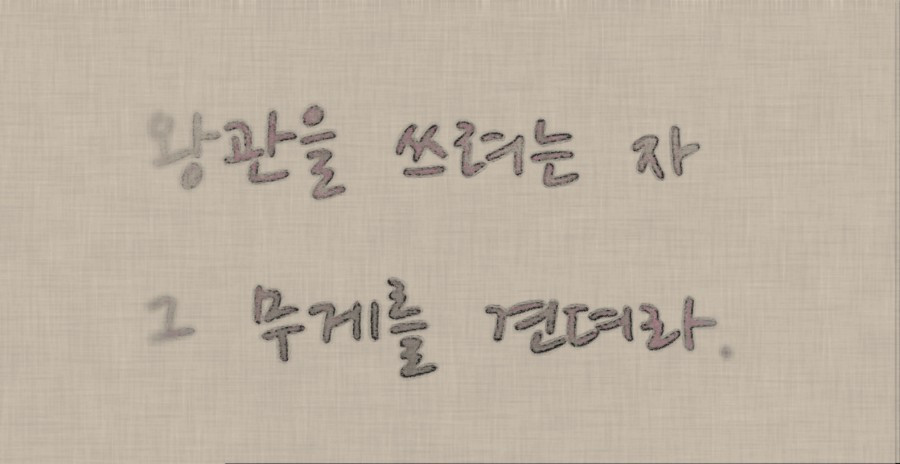 왕관을 쓰려는 자
그 무게를 견뎌라.